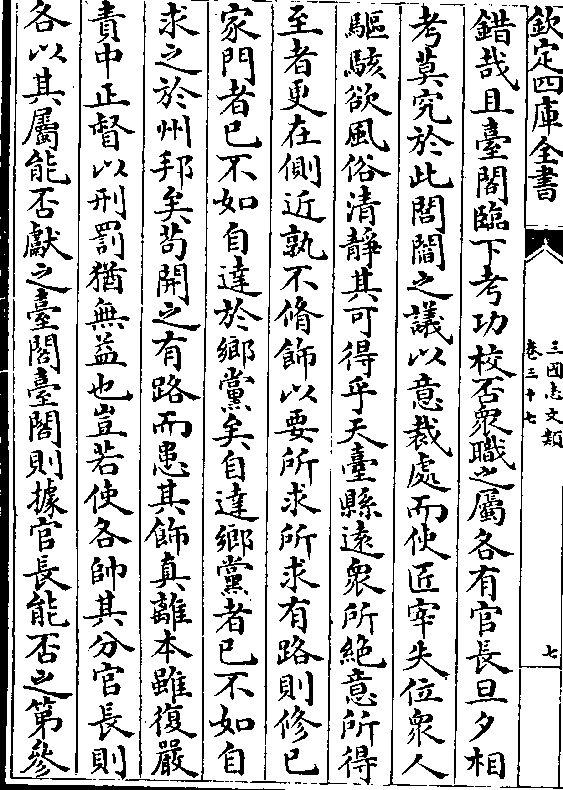 欽定四庫全書
三國志文類
卷三十七
七
錯哉且臺閣臨下考功校否衆職之屬各有官長旦夕相
考莫究於此閭閻之議以意裁處而使匠宰失位衆人
驅駭欲風俗清靜其可得乎天臺縣逺衆所絶意所得
至者更在側近孰不脩飾以要所求所求有路則修已
家門者已不如自達於鄉黨矣自達鄉黨者已不如自
求之於州邦矣茍開之有路而患其飾真離本雖復嚴
責中正督以刑罰猶無益也豈若使各帥其分官長則
各以其屬能否獻之臺閣臺閣則據官長能否之第參